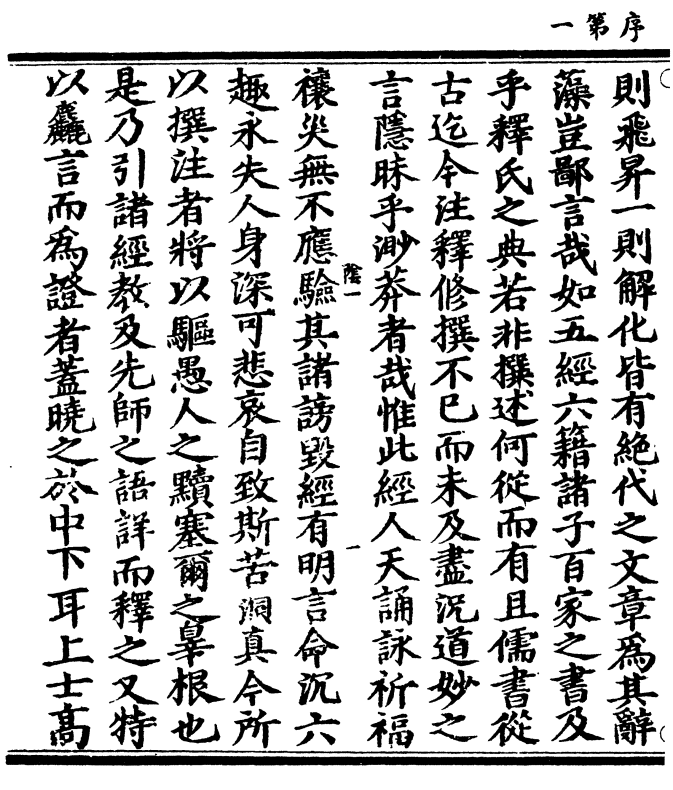 序第一
則飛昇一則解化皆有絕代之文章爲其辭
藻豈鄙言哉如五經六籍諸子百家之書及
乎釋氏之典若非撰述何從而有且儒書從
古迄今注釋修撰不已而未及盡況道妙之
言隱昧乎渺莽者哉惟此經人天誦詠祈福
陰一
禳災無不應驗其諸謗毀經有明言命沉六
趣永失人身深可悲哀自致斯苦洞真今所
以撰注者將以驅愚人之黷塞爾之辠根也
是乃引諸經教及先師之語詳而釋之又特
以麤言而爲證者蓋曉之於中下耳上士高